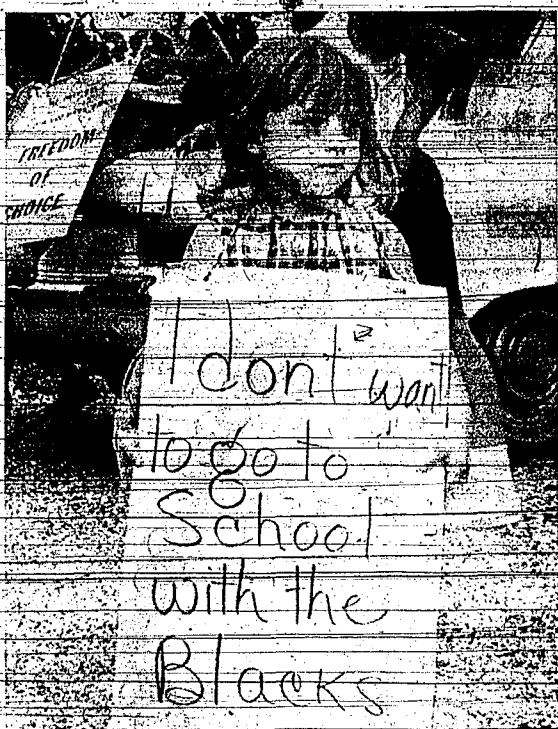 FREEDOM
OF
CHOICE
I don't want
to go to
School
with the
Blacks